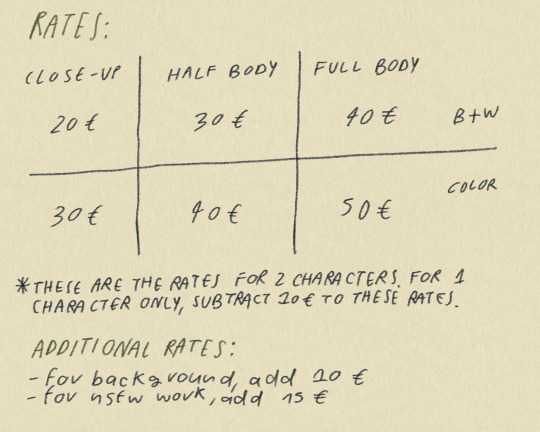 RATES:
CLOSE-UP HALF BODY FULL BODY
20 € 30 € 40 € B+W
30 € 40 € 50 € COLOR
*THESE ARE THE RATES FOR 2 CHARACTERS. FOR 1
CHARACTER ONLY, SUBTRACT 10€ TO THESE RATES.
ADDITIONAL RATES:
- for background, add 10 €
- for nsfw work, add 15 €